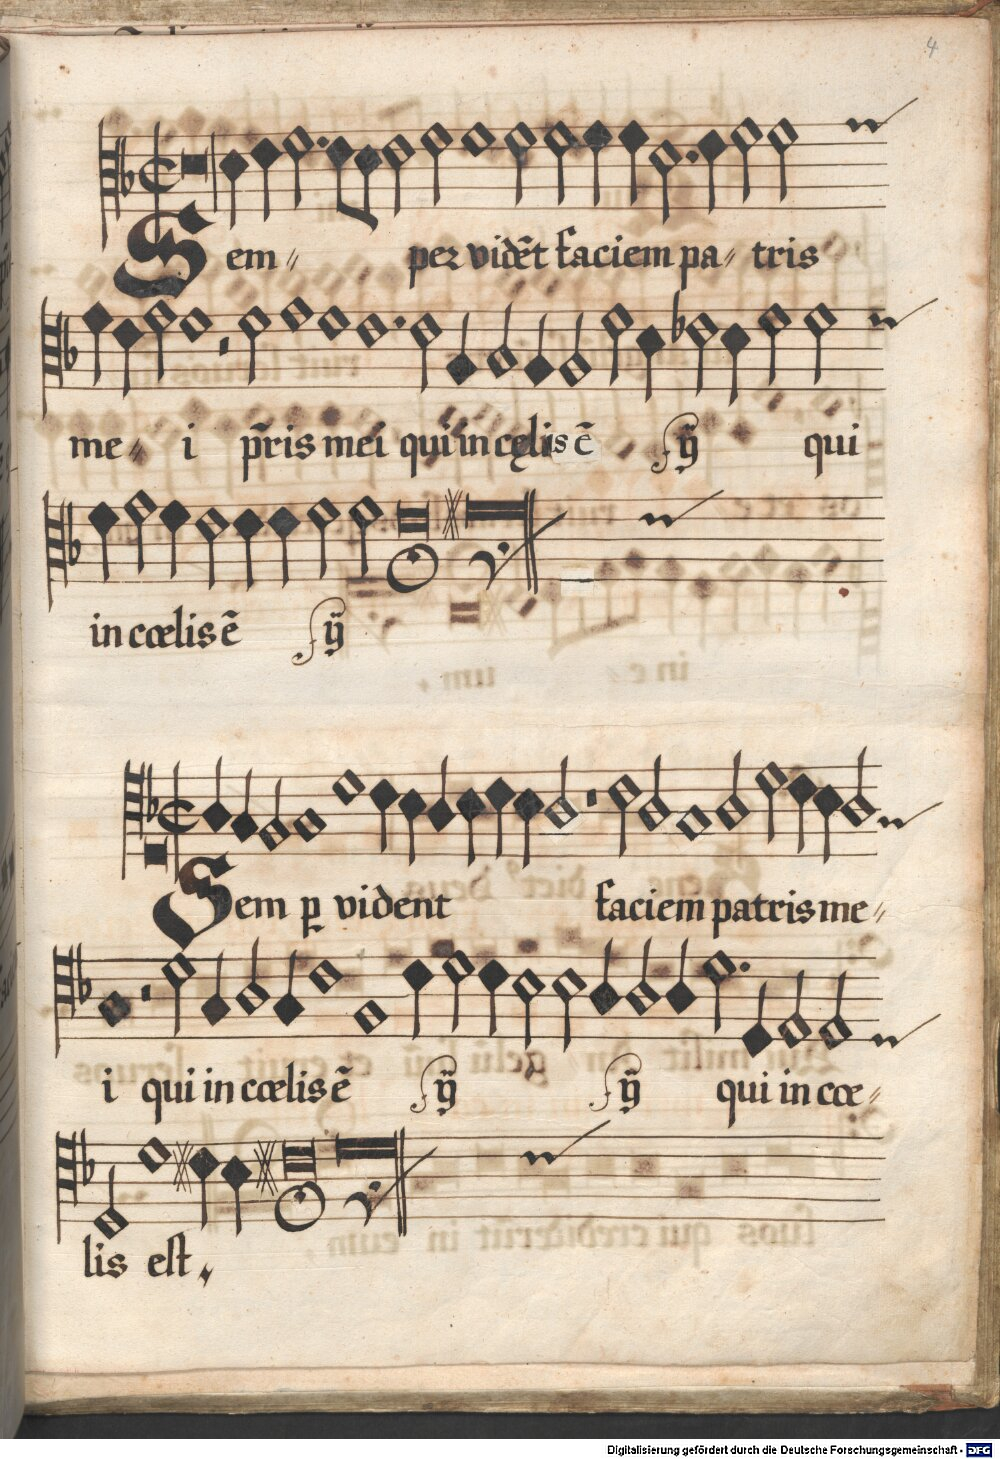 4
Sem〃 per vidẽt faciem pa〃 tris
me〃 i p̃ris mei qui in cęlis ẽ ſÿ qui
in cœlis ẽ ſÿ
Sem ꝑ vident faciem patris me〃
i qui in cœlis ẽ ſÿ ſÿ qui in cœ〃
lis eſt,
Digitalisierung gefördert durch die Deutsche Forschungsgemeinschaft - DFG